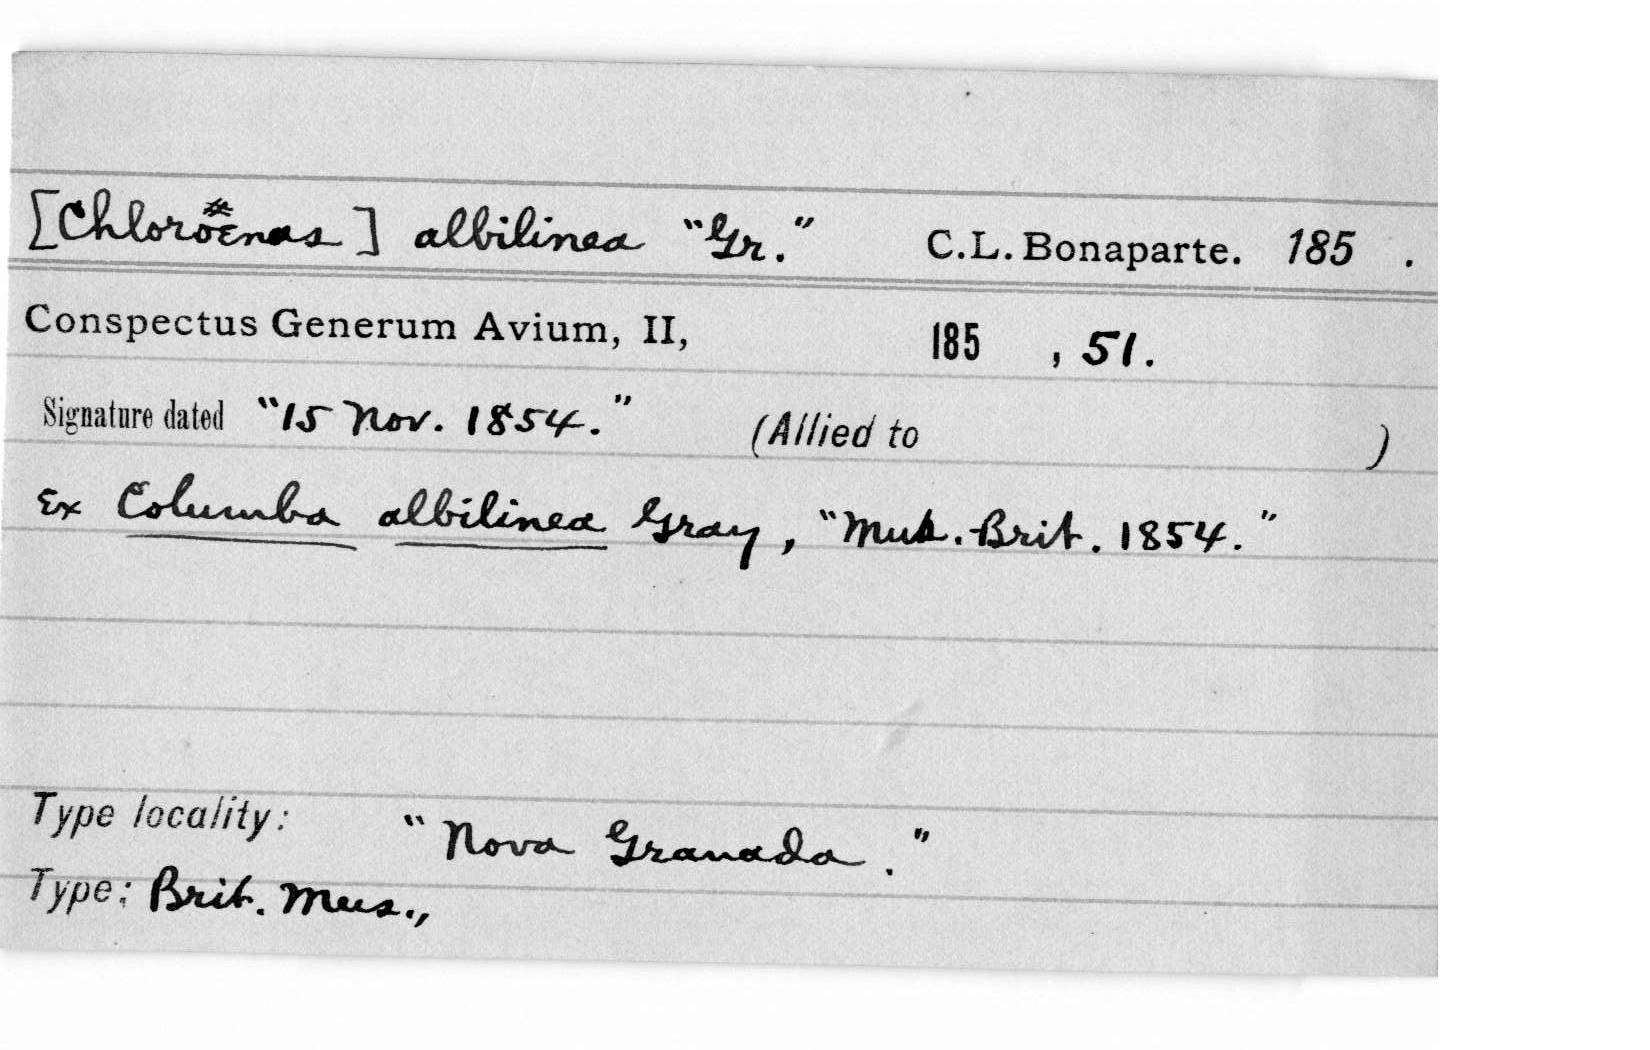 [Chloroenas] albilinea "Gr." C.L. Bonaparte. 185 .
Conspectus Generum Avium, II, 185 , 51.
Signature dated "15 Nov. 1854." (Allied to )
Ex Columba albilinea Gray, "Mus. Brit. 1854."
Type locality: "Nova Granada."
Type: Brit. Mus.,